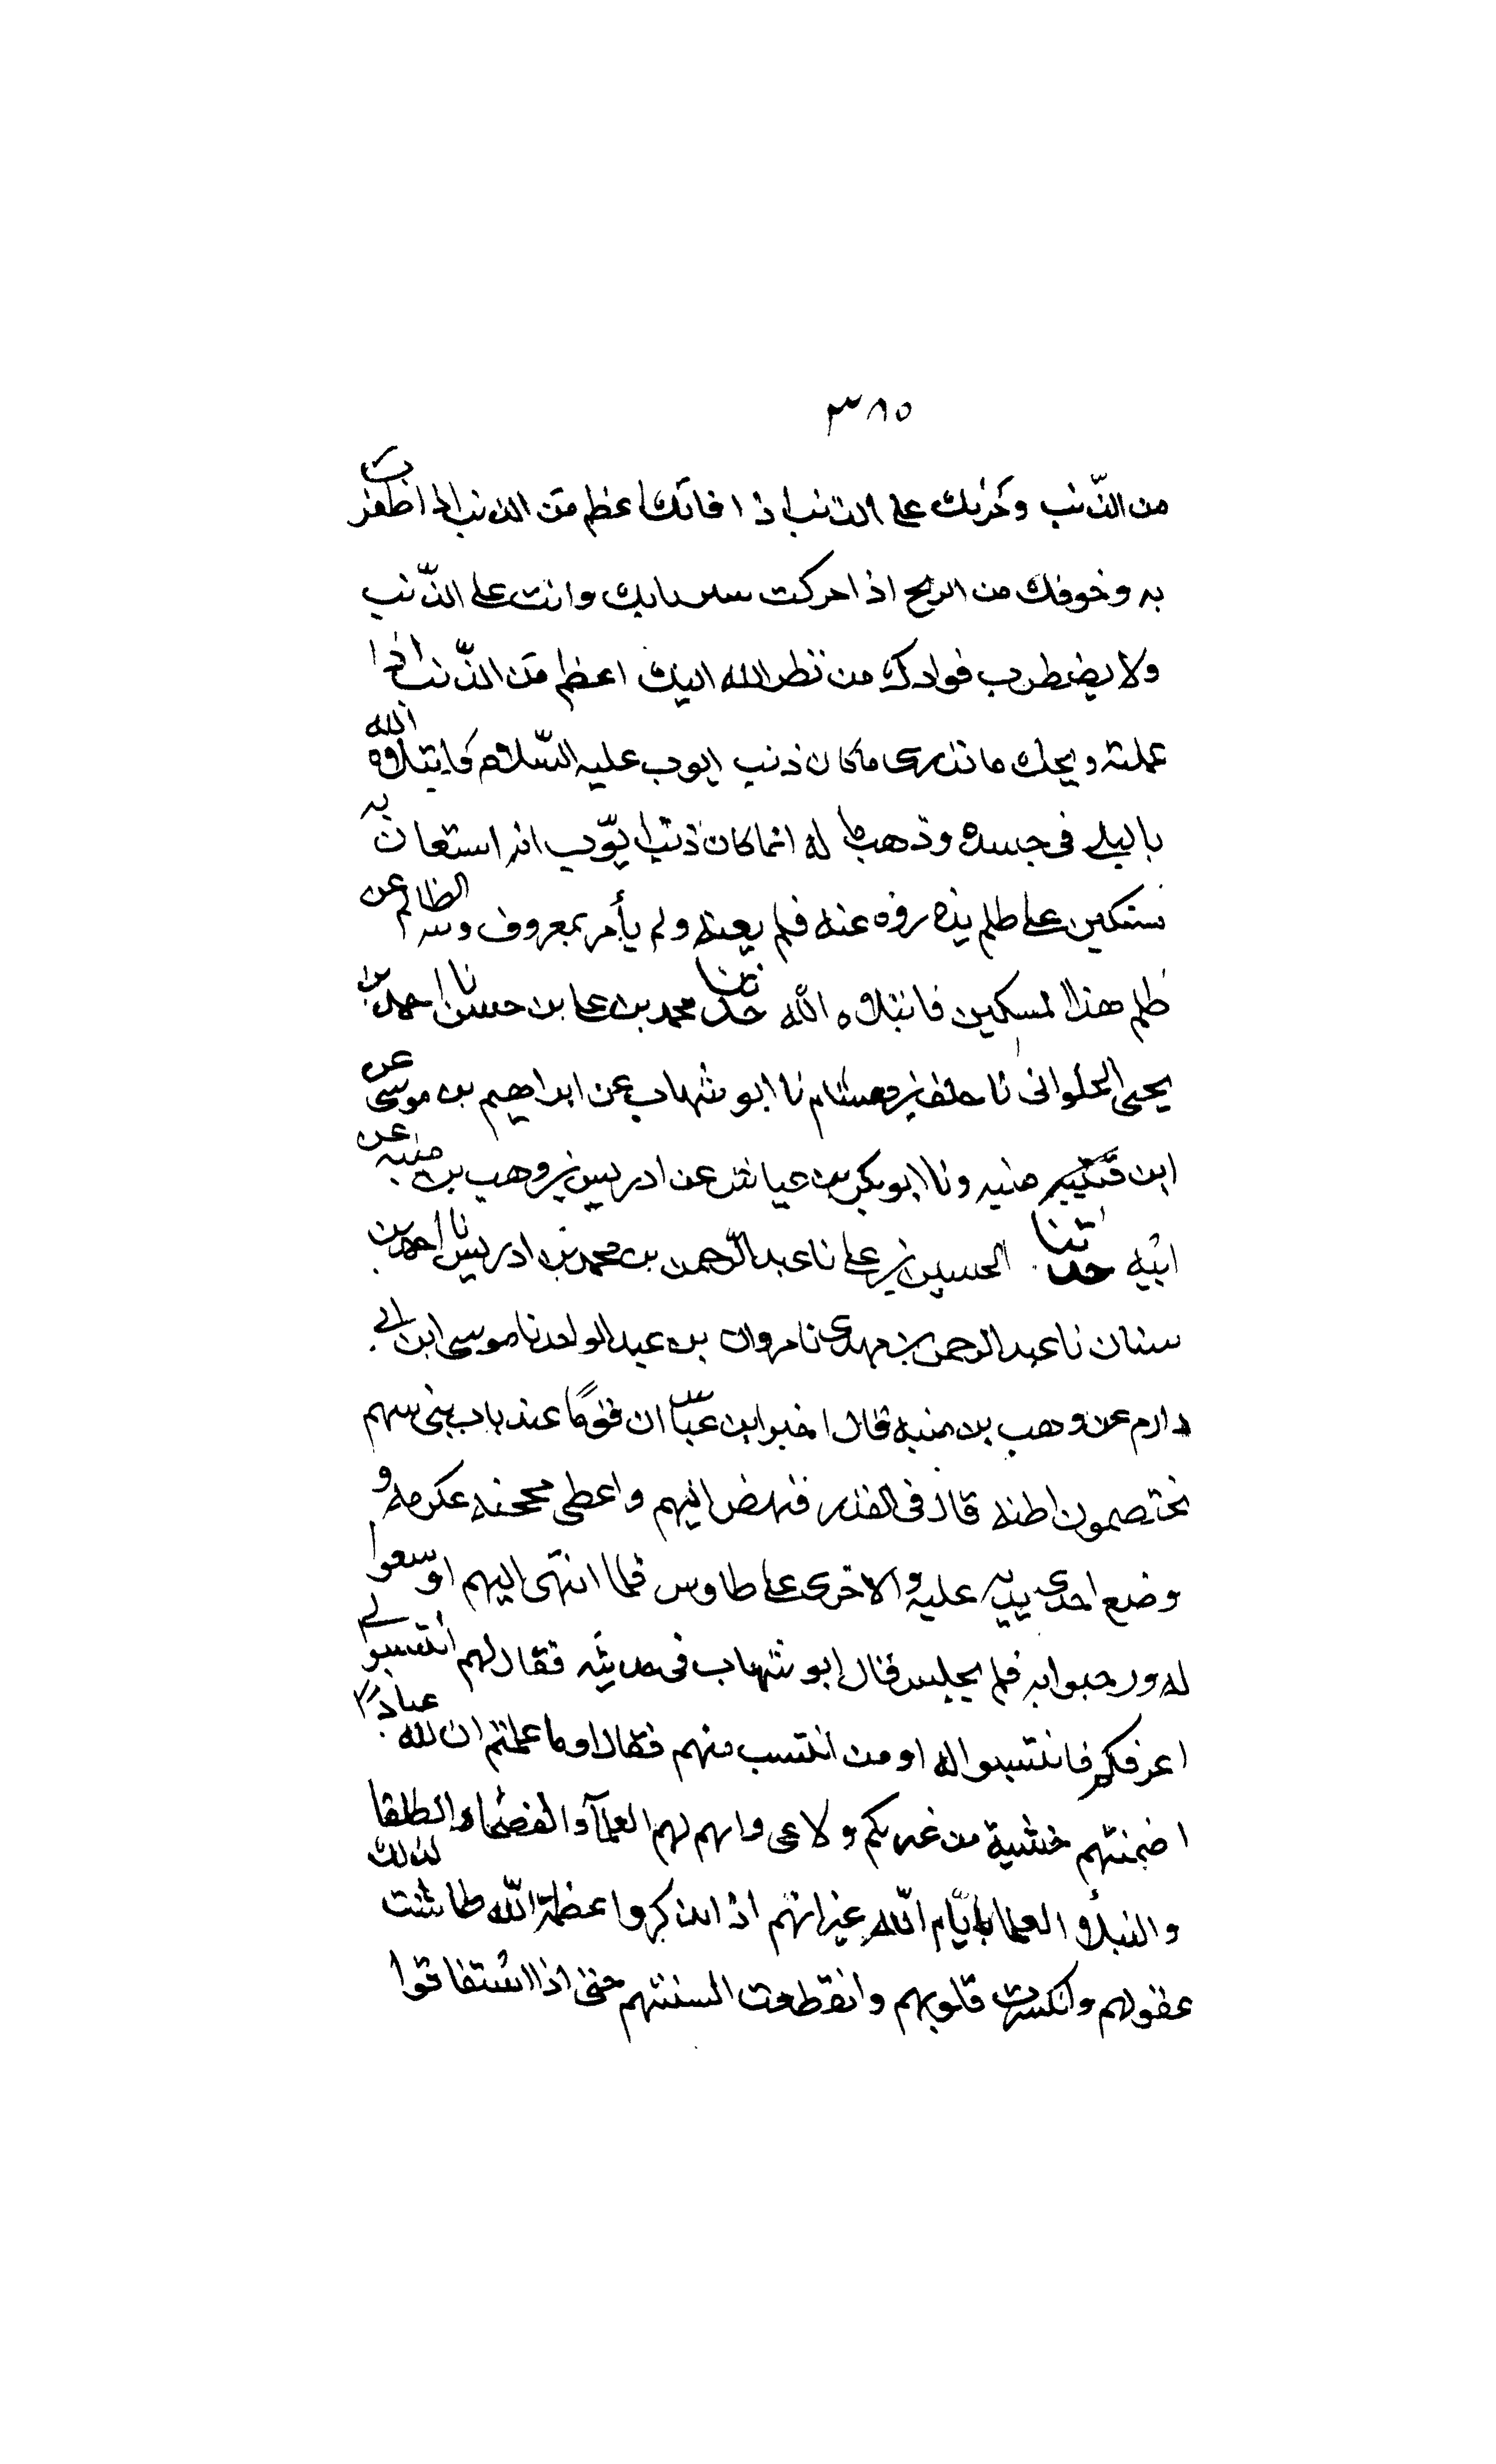 ٣٨٥
من الذّنب وحُزنك على الذنب اذا فاتك اعظم من الذنب اذا ظفرت
به وخوفك من الريح اذا حركت ستر بابك وانت على الذّنب
ولا يضطرب فوادك من نظر الله اليك اعظم من الذّنب اذا
عملته ويحك ما تدرى ما كان ذنب ايوب عليه السّلام فابتلاه الله
بالبلى فى جسده وذهاب ماله انما كان ذنب ايّوب انه استعان به
مسكين على ظلم يدروه عنه فلم يعنه ولم يأمر بمعروف الظالم عن
ظلم هذا المسكين فابتلاه الله حدثنا محمد بن على بن حسن نا احمد بن
يحيى الحلوانى نا خلف بن هشام نا ابو شهاب عن ابراهيم بن موسى عن
ابن منبه ونا ابو بكر بن عياش عن ادريس بن وهب بن منبه عن
ابيه حدثنا الحسين بن على نا عبد الرّحمن بن محمد بن ادريس نا احمد بن
سنان نا عبد الرحمن بن مهدى نا مروان بن عبد الواحد نا موسى ابن ابى
دارم عن وهب بن منبه قال اخبر ابن عبّاس ان قومًا عند باب بنى سهم
يختصمون اظنه قال فى القدر فنهض اليهم واعطى محجنه عكرمه و
وضع احدى يديه عليه والاخرى على طاوس فلما انتهى اليهم اوسعوا
له ورحبوا به فلم يجلس قال ابو شهاب فى حديثه فقال لهم انتسبوا لى
اعرفكم فانتسبوا له او من انتسب منهم فقال او ما علمتم ان لله عبادًا
اصمتهم خشية من غير بكم ولا عى وانهم لهم العلمآ والفصحاء والطلقا
والنبلأ العلما بايّام الله غير انهم اذا تذكروا عظمة الله طاشت لذلك
عقولهم وانكسرت قلوبهم وانقطعت السنتهم حتى اذا استفاقوا